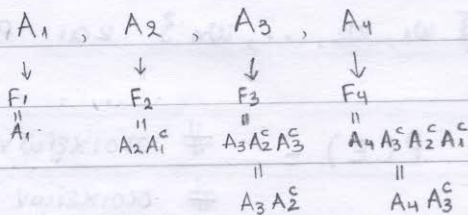 A₁ , A₂ , A₃ , A₄
↓ ↓ ↓ ↓
F₁ F₂ F₃ F₄
॥ ॥ ॥ ॥
A₁ A₂A₁ᶜ A₃A₂ᶜA₃ᶜ A₄A₃ᶜA₂ᶜA₁ᶜ
॥ ॥
A₃A₂ᶜ A₄A₃ᶜ